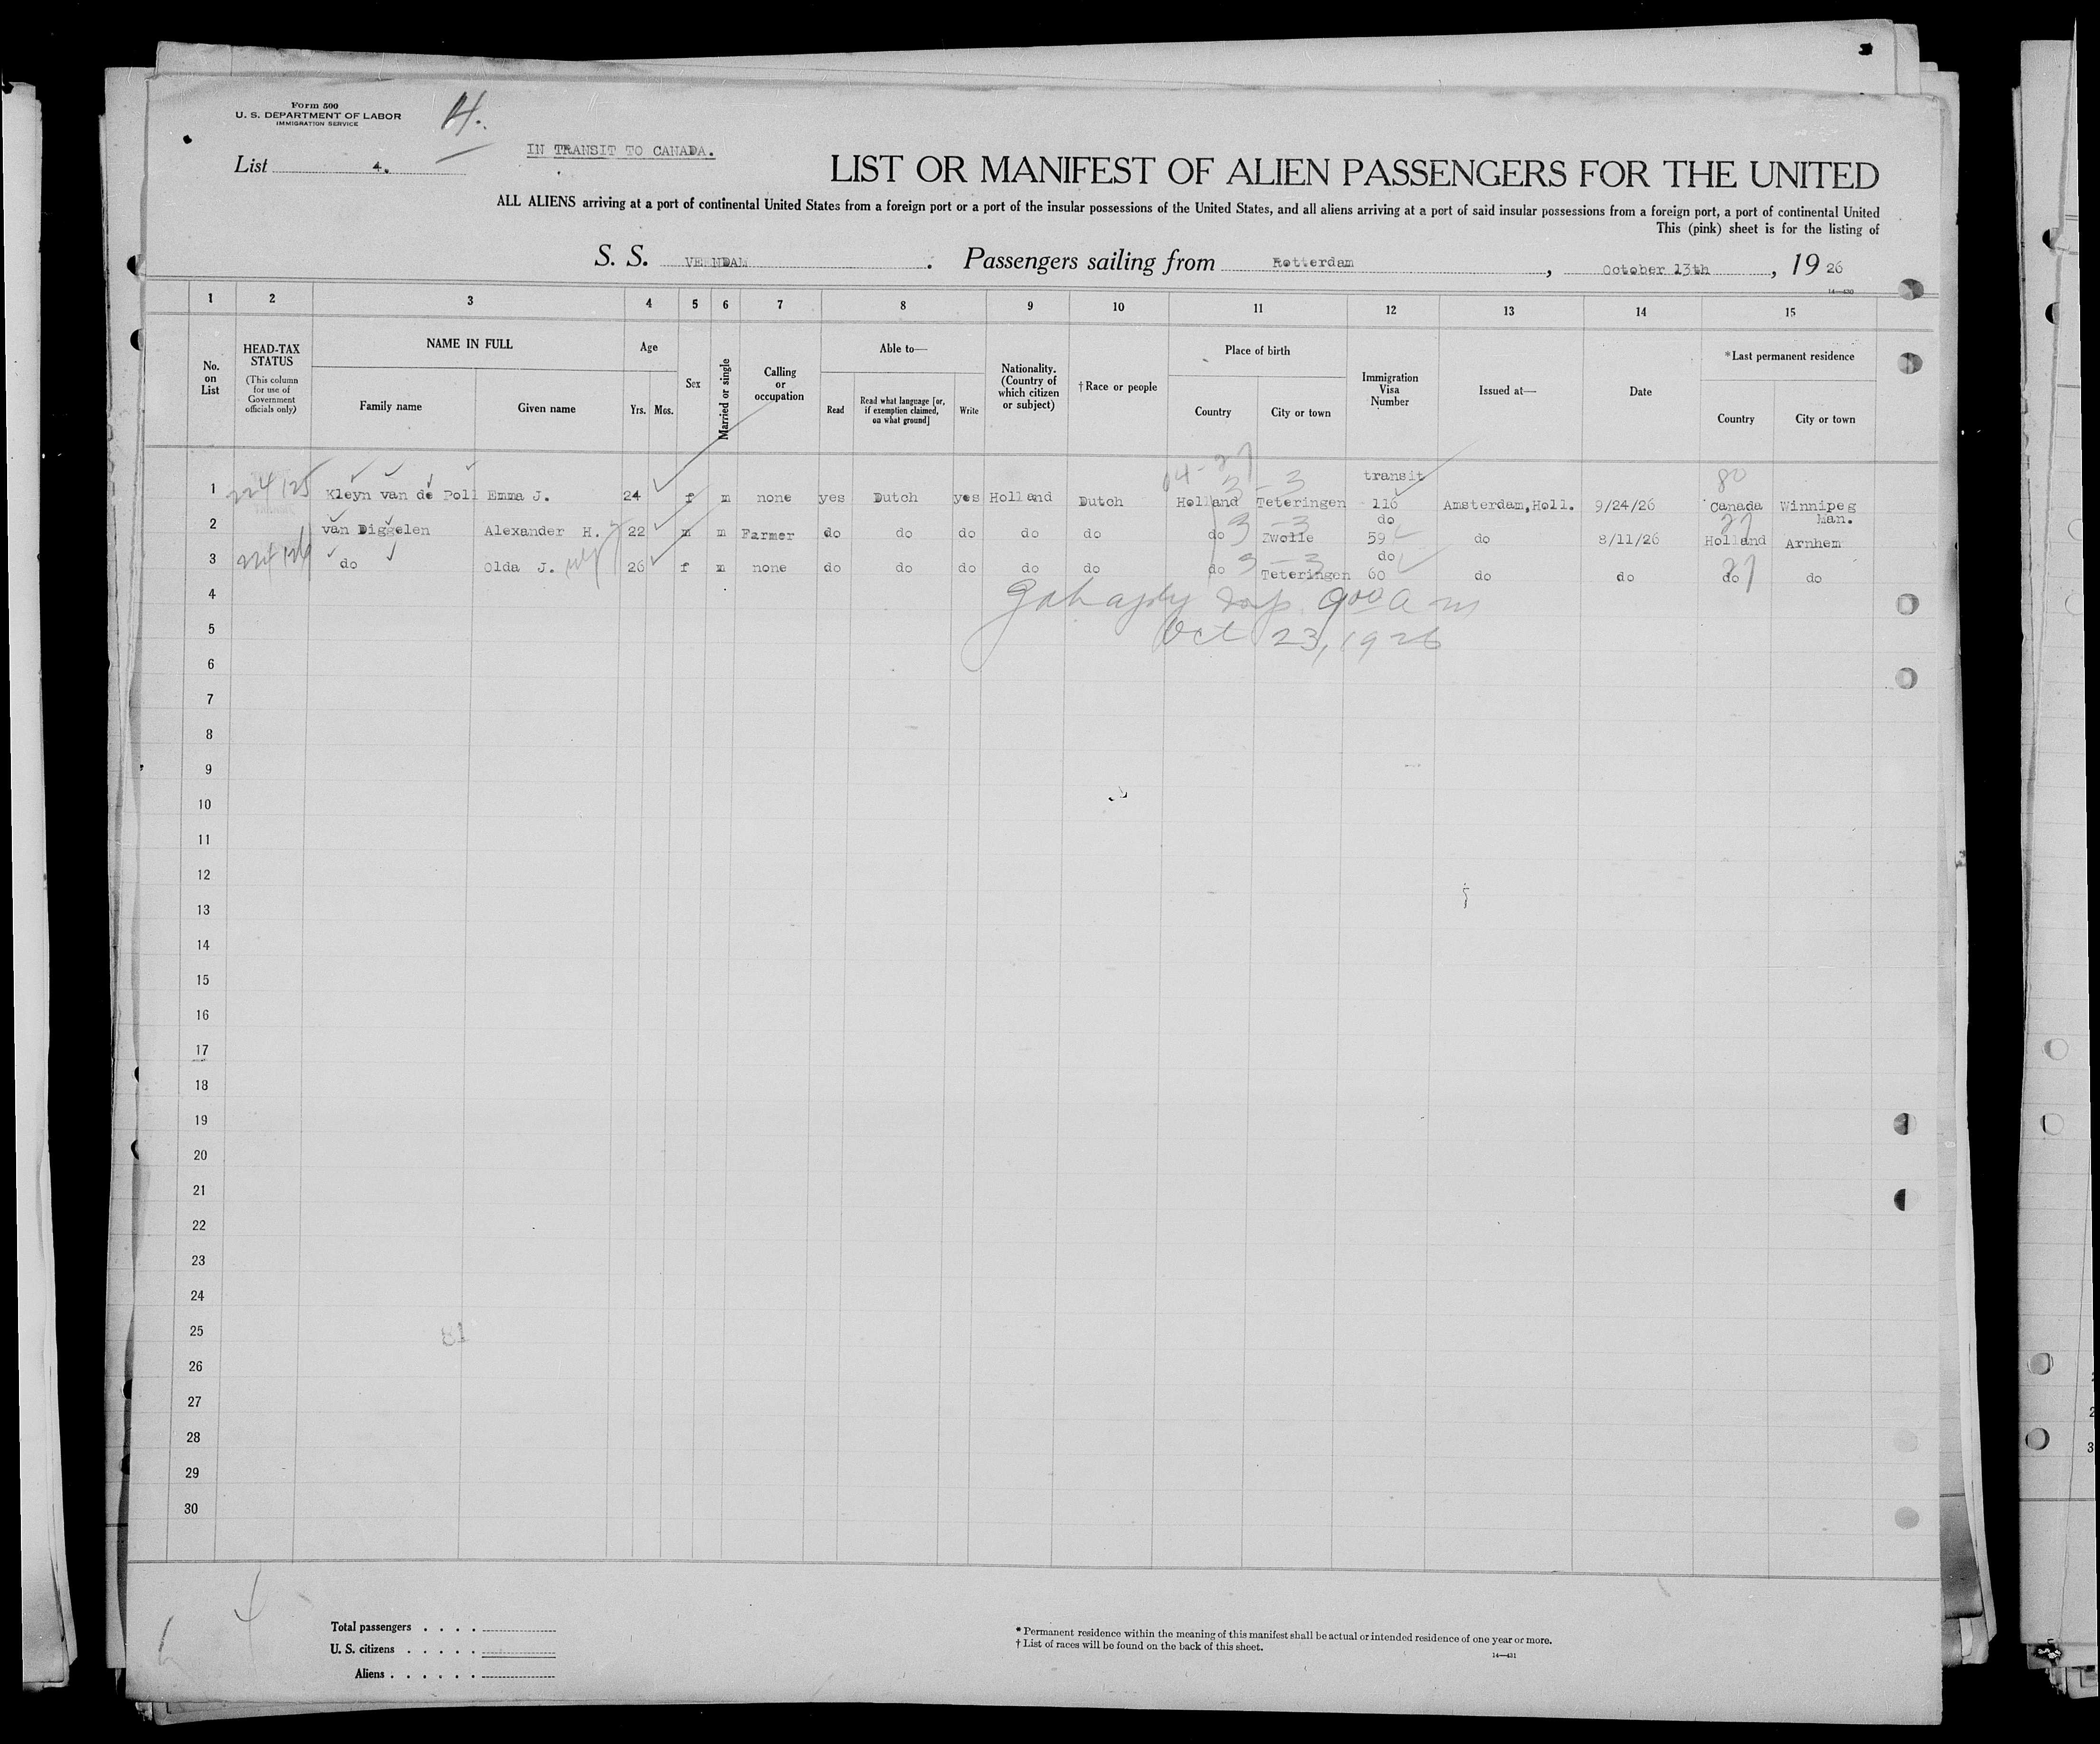 Form 500
U. S. DEPARTMENT OF LABOR
IMMIGRATION SERVICE
4.
List 4.
IN TRANSIT TO CANADA.
LIST OR MANIFEST OF ALIEN PASSENGERS FOR THE UNITED
ALL ALIENS arriving at a port of continental United States from a foreign port or a port of the insular possessions of the United States, and all aliens arriving at a port of said insular possessions from a foreign port, a port of continental United
This (pink) sheet is for the listing of
S. S. VEENDAM . Passengers sailing from Rotterdam , October 13th , 19 26
14—430
1 2 3 4 5 6 7 8 9 10 11 12 13 14 15
No. on List
HEAD-TAX STATUS (This column for use of Government officials only)
NAME IN FULL
Family name Given name
Age
Yrs. Mos.
Sex
Married or single
Calling or occupation
Able to—
Read Read what language [or, if exemption claimed, on what ground] Write
Nationality. (Country of which citizen or subject)
†Race or people
Place of birth
Country City or town
Immigration Visa Number
Issued at—
Date
*Last permanent residence
Country City or town
04-27 transit 80
1 224/125 Kleyn van de Poll Emma J. 24 f m none yes Dutch yes Holland Dutch Holland 3 - 3 Teteringen 116 Amsterdam, Holl. 9/24/26 Canada Winnipeg Man.
2 van Diggelen Alexander H. 22 m m Farmer do do do do do do 3 - 3 Zwolle do 59 do 8/11/26 27 Holland Arnhem
3 224/126 do Olda J. 26 f m none do do do do do do 3 - 3 Teteringen do 60 do do 27 do do
4 900 a m
5 Oct 23, 1926
6
7
8
9
10
11
12
13
14
15
16
17
18
19
20
21
22
23
24
25
26
27
28
29
30
81
4
Total passengers . . . .
U. S. citizens . . . . .
Aliens . . . . . .
* Permanent residence within the meaning of this manifest shall be actual or intended residence of one year or more.
† List of races will be found on the back of this sheet.
14—431
2
3